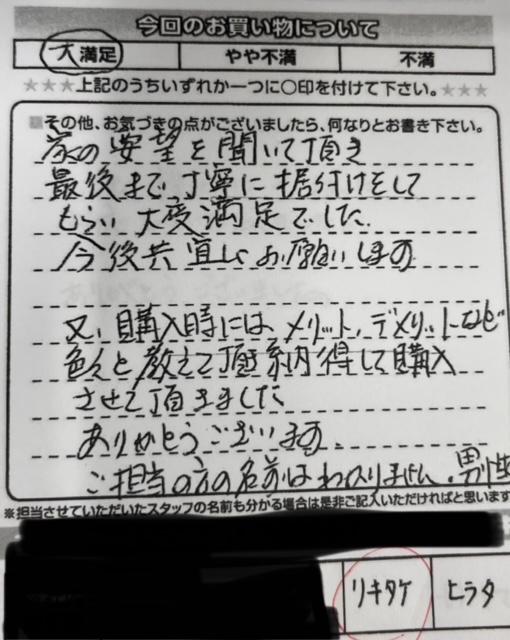 今回のお買い物について
大満足 やや不満 不満
★★★上記のうちいずれか一つに○印を付けて下さい。★★★
その他、お気づきの点がございましたら、何なりとお書き下さい。
の要望を聞いて頂き
最後まで丁寧に据付けをして
もらい大変満足でした
今後共宜しくお願いします
又、購入時にはメリット、デメリットなど
色々と教えて頂き納得して購入
させて頂きました
ありがとうございます。
ご担当の方の名前はわかりません、男性
※担当させていただいたスタッフの名前も分かる場合は是非ご記入いただければと思います
リキタケ ヒラタ